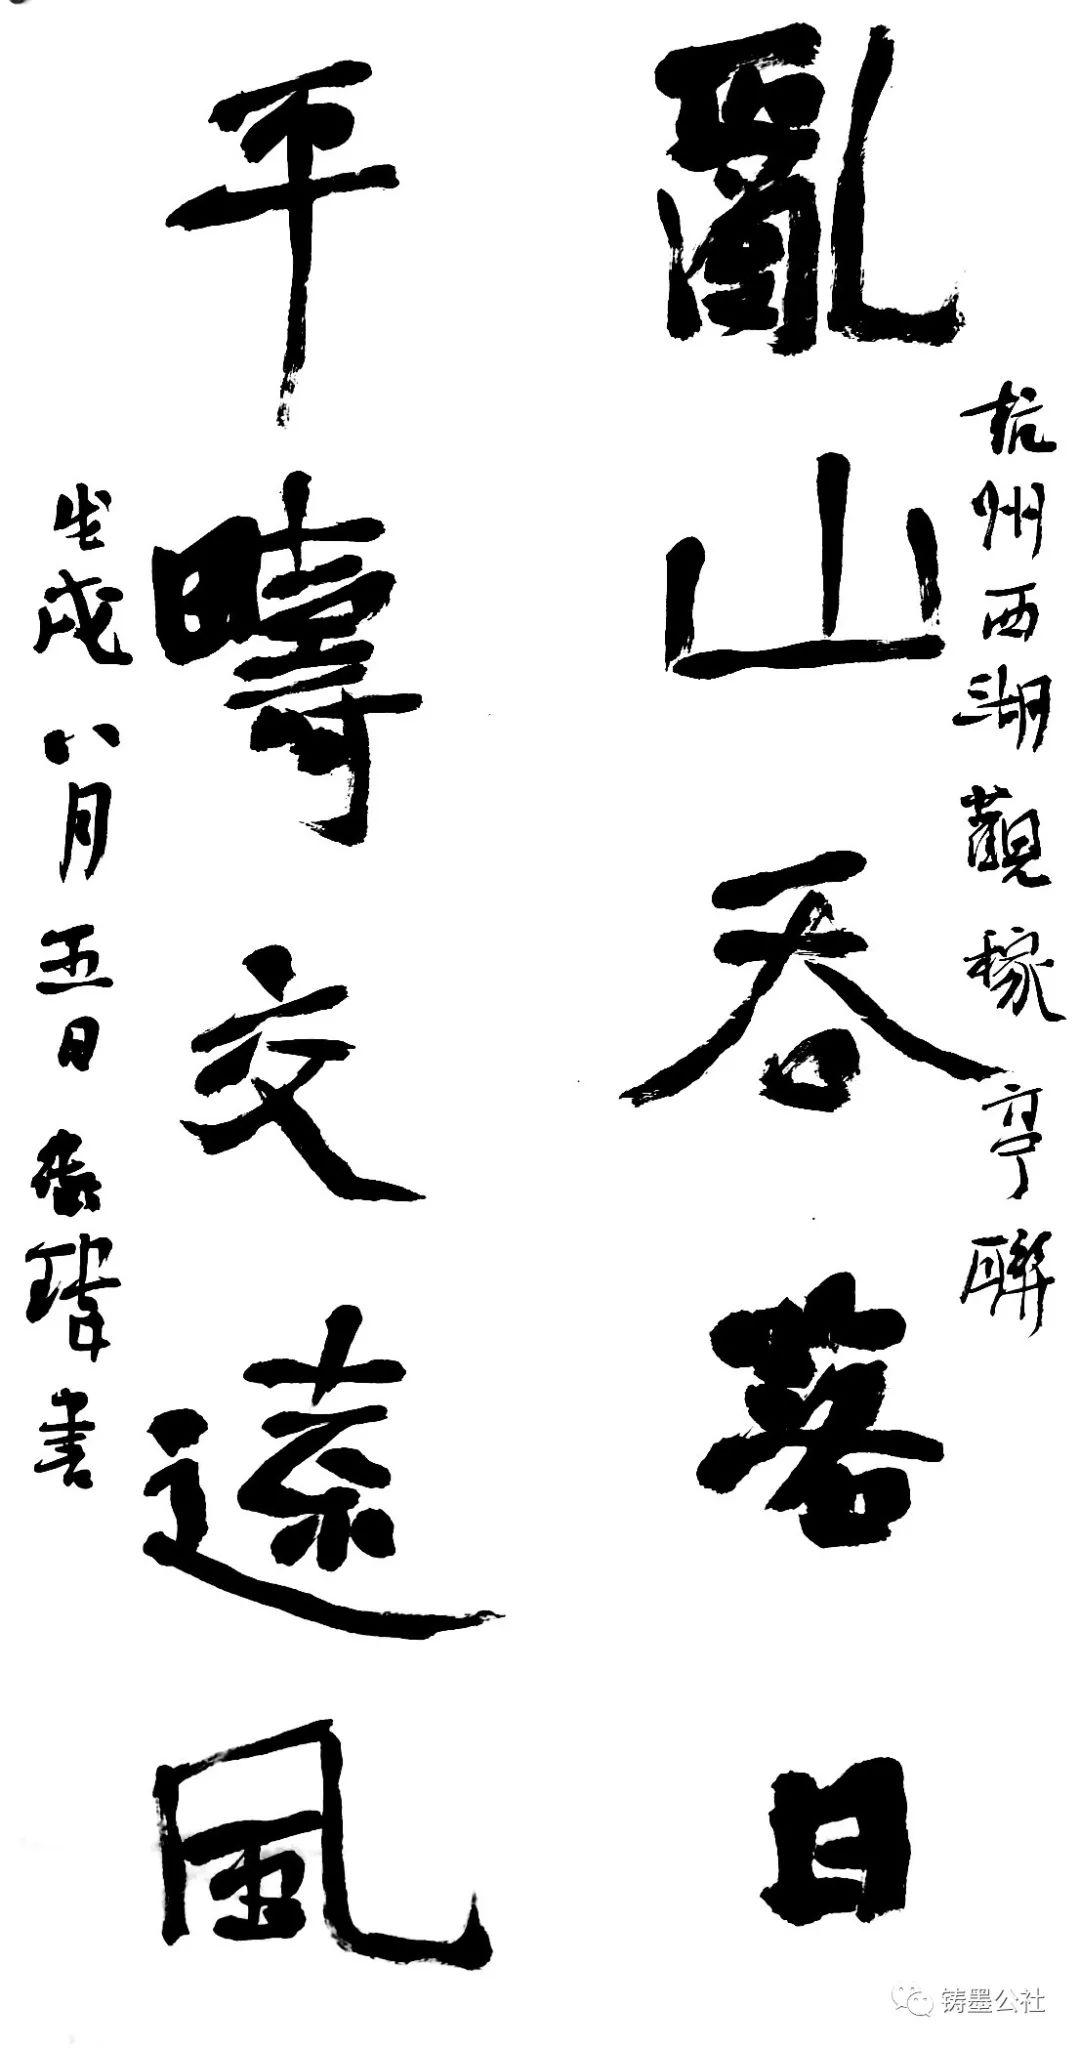 杭州西湖觀稼亭聯
亂山吞落日
平疇交遠風
戊戌八月五日瑋書
铸墨公社